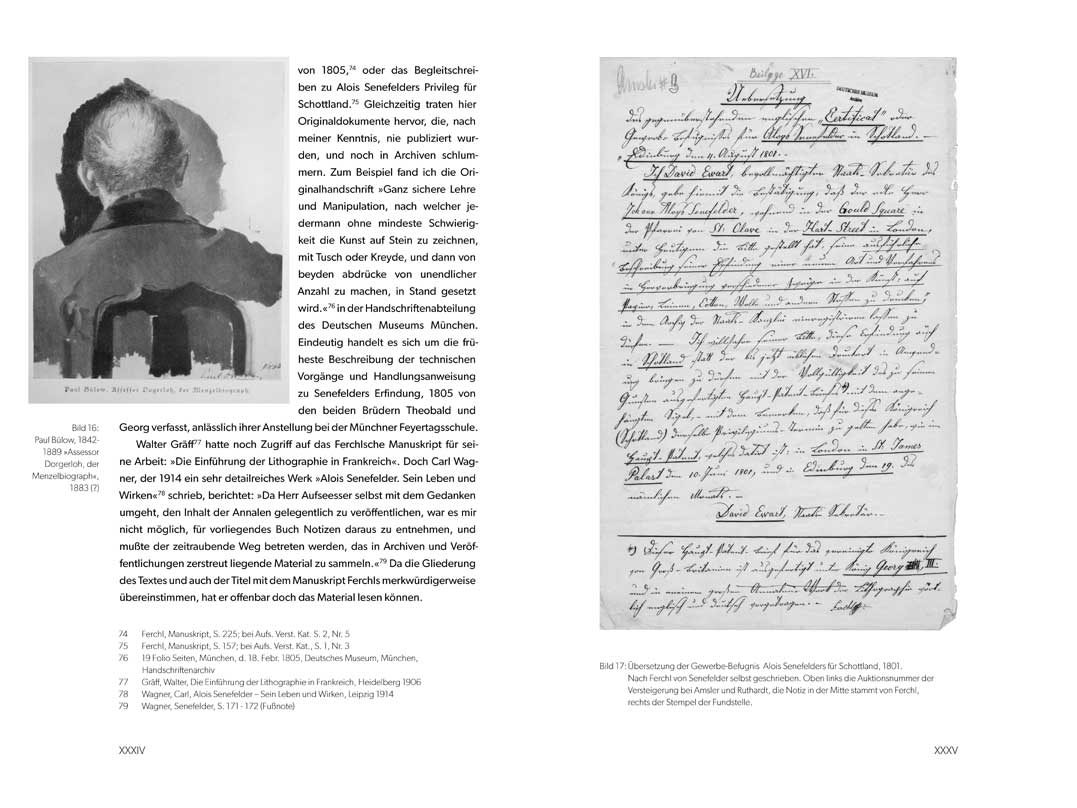 von 1805,74 oder das Begleitschrei-
ben zu Alois Senefelders Privileg für
Schottland.75 Gleichzeitig traten hier
Originaldokumente hervor, die, nach
meiner Kenntnis, nie publiziert wur-
den, und noch in Archiven schlum-
mern. Zum Beispiel fand ich die Ori-
ginalhandschrift »Ganz sichere Lehre
und Manipulation, nach welcher je-
dermann ohne mindeste Schwierig-
keit die Kunst auf Stein zu zeichnen,
mit Tusch oder Kreyde, und dann von
beyden abdrücke von unendlicher
Anzahl zu machen, in Stand gesetzt
wird.«76 in der Handschriftenabteilung
des Deutschen Museums München.
Eindeutig handelt es sich um die frü-
heste Beschreibung der technischen
Vorgänge und Handlungsanweisung
zu Senefelders Erfindung, 1805 von
den beiden Brüdern Theobald und
Georg verfasst, anlässlich ihrer Anstellung bei der Münchner Feyertagsschule.
Walter Gräff77 hatte noch Zugriff auf das Ferchlsche Manuskript für sei-
ne Arbeit: »Die Einführung der Lithographie in Frankreich«. Doch Carl Wag-
ner, der 1914 ein sehr detailreiches Werk »Alois Senefelder. Sein Leben und
Wirken«78 schrieb, berichtet: »Da Herr Aufseesser selbst mit dem Gedanken
umgeht, den Inhalt der Annalen gelegentlich zu veröffentlichen, war es mir
nicht möglich, für vorliegendes Buch Notizen daraus zu entnehmen, und
mußte der zeitraubende Weg betreten werden, das in Archiven und Veröf-
fentlichungen zerstreut liegende Material zu sammeln.«79 Da die Gliederung
des Textes und auch der Titel mit dem Manuskript Ferchls merkwürdigerweise
übereinstimmen, hat er offenbar doch das Material lesen können.
Paul Bülow. Assessor Dorgerloh, der Menzelbiograph.
Bild 16:
Paul Bülow, 1842-
1889 »Assessor
Dorgerloh, der
Menzelbiograph«,
1883 (?)
74 Ferchl, Manuskript, S. 225; bei Aufs. Verst. Kat. S. 2, Nr. 5
75 Ferchl, Manuskript, S. 157; bei Aufs. Verst. Kat., S. 1, Nr. 3
76 19 Folio Seiten, München, d. 18. Febr. 1805, Deutsches Museum, München,
Handschriftenarchiv
77 Gräff, Walter, Die Einführung der Lithographie in Frankreich, Heidelberg 1906
78 Wagner, Carl, Alois Senefelder – Sein Leben und Wirken, Leipzig 1914
79 Wagner, Senefelder, S. 171 - 172 (Fußnote)
XXXIV
Beilage XVI.
DEUTSCHES MUSEUM
Archiv
Uebersetzung
des gegenüberstehenden englischen „Certificat" oder
Gewerbe Befugnisses für Aloys Senefelder in Schottland. –
„Edinburg den 11. August 1801. –
Ich David Ewart, bevollmächtigter Staats-Sekretär des
Königs, gebe hiermit die Bestätigung, daß der edle Herr
Johann Aloys Senefelder, wohnend in der Gould Square in
der Pfarrei von St. Clave in der Hart-Street in London,
in Schottland statt der bis jetzt üblichen
(Schottland) dasselbe Privilegiums-Termin zu gelten habe, wie im
Haupt-Patent, welches datirt ist: in London in St. James
Palast den 10. Juni 1801, und in Edinburg den 19. des
nämlichen Monats. –
David Ewart, Staats Sekretär. –
*) Dieser Haupt-Patent-Brief für das vereinigte Königreich
von Groß-Britanien ist ausgefertigt unter König Georg III.
Bild 17: Übersetzung der Gewerbe-Befugnis Alois Senefelders für Schottland, 1801.
Nach Ferchl von Senefelder selbst geschrieben. Oben links die Auktionsnummer der
Versteigerung bei Amsler und Ruthardt, die Notiz in der Mitte stammt von Ferchl,
rechts der Stempel der Fundstelle.
XXXV